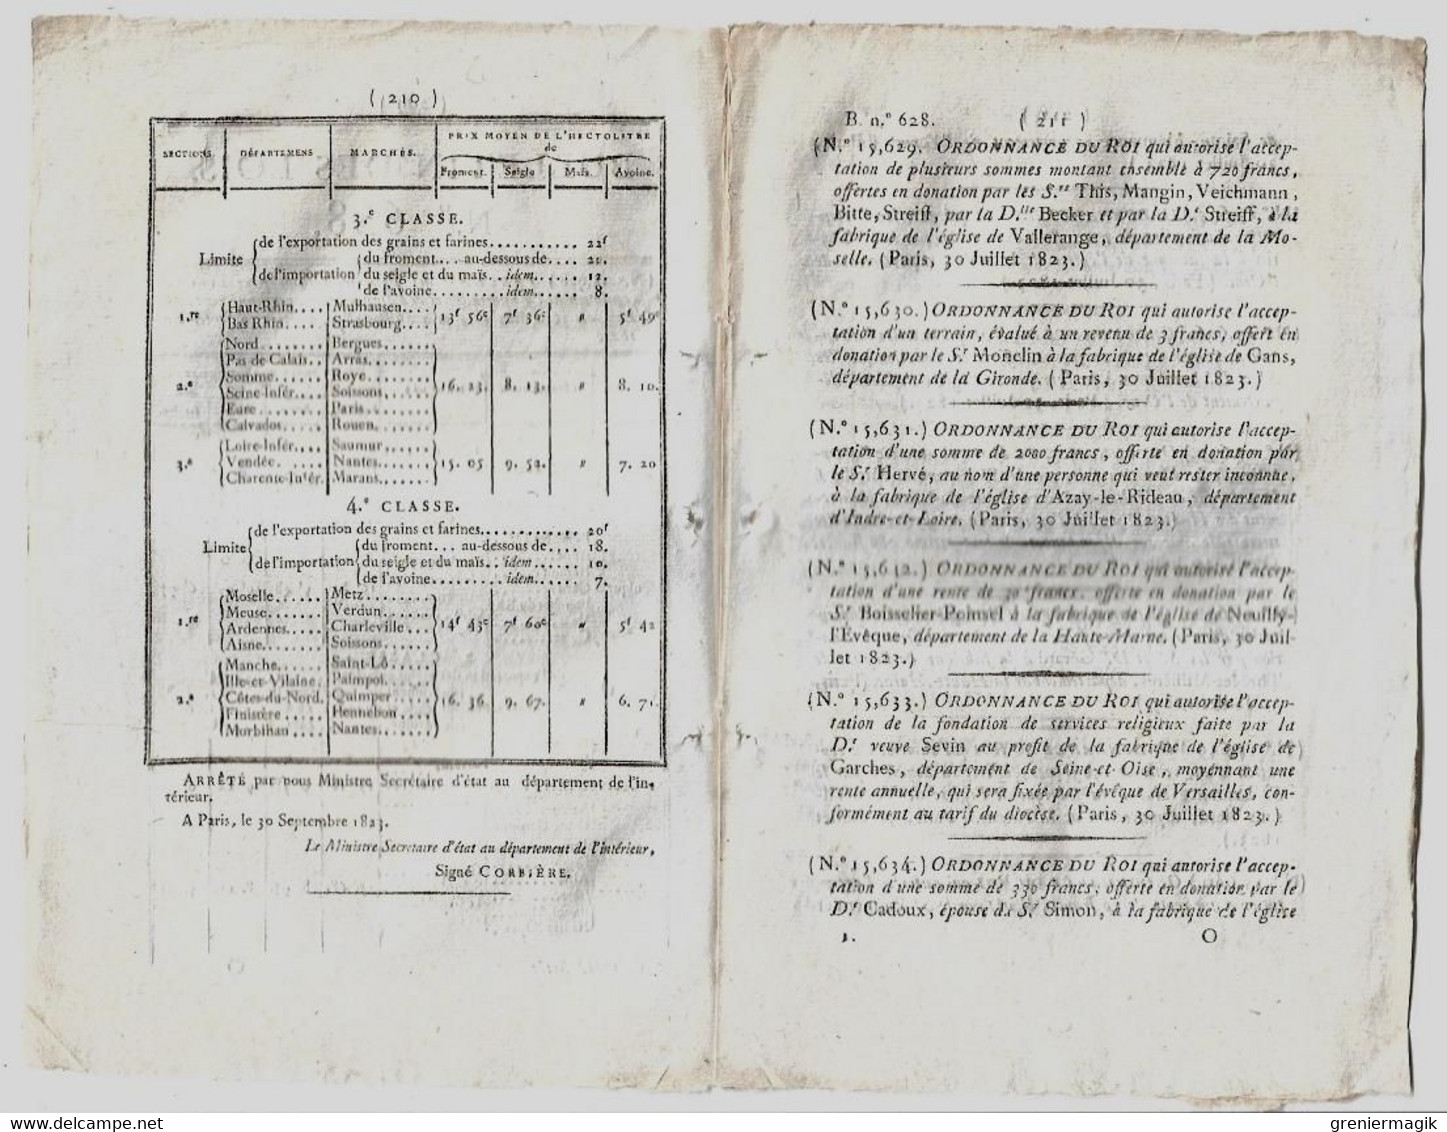 ( 210 )
PRIX MOYEN DE L'HECTOLITRE
de
SECTIONS. DÉPARTEMENS MARCHÉS.
Froment. Seigle Maïs. Avoine.
3.e CLASSE.
Limite
de l'exportation des grains et farines........... 22f
de l'importation
du froment.... au-dessous de.... 20.
du seigle et du maïs.. idem...... 12.
de l'avoine......... idem...... 8.
1.re
Haut-Rhin.... Mulhausen....
Bas Rhin.... Strasbourg....
13f 56c 7f 36c " 5f 49c
2.e
Nord ........ Bergues......
Pas de Calais.. Arras........
Somme...... Roye........
Seine-Infér.... Soissons......
Eure ........ Paris........
Calvados..... Rouen.......
16. 23. 8. 13. " 8. 10.
3.e
Loire-Infér.... Saumur.......
Vendée. .... Nantes......
Charente-Infér. Marans.......
15. 05 9. 52. " 7. 20
4.e CLASSE.
Limite
de l'exportation des grains et farines............ 20f
de l'importation
du froment... au-dessous de.... 18.
du seigle et du maïs.. idem...... 10.
de l'avoine......... idem...... 7.
1.re
Moselle...... Metz........
Meuse....... Verdun......
Ardennes.... Charleville...
Aisne....... Soissons.....
14f 43c 7f 60c " 5f 42
2.e
Manche...... Saint-Lô.....
Ille-et-Vilaine. Paimpol.....
Côtes-du-Nord. Quimper....
Finistère ..... Hennebon ....
Morbihan .... Nantes.......
16. 36. 9. 67. " 6. 71
ARRÊTÉ par nous Ministre Secrétaire d'état au département de l'in-
térieur.
A Paris, le 30 Septembre 1823.
Le Ministre Secrétaire d'état au département de l'intérieur,
Signé CORBIÈRE.
B. n.° 628. ( 211 )
(N.° 15,629. ORDONNANCE DU ROI qui autorise l'accep-
tation de plusieurs sommes montant ensemble à 720 francs,
offertes en donation par les S.rs This, Mangin, Veichmann,
Bitte, Streiff, par la D.lle Becker et par la D.e Streiff, à la
fabrique de l'église de Vallerange, département de la Mo-
selle. (Paris, 30 Juillet 1823.)
(N.° 15,630.) ORDONNANCE DU ROI qui autorise l'accep-
tation d'un terrain, évalué à un revenu de 3 francs, offert en
donation par le S.r Monclin à la fabrique de l'église de Gans,
département de la Gironde. (Paris, 30 Juillet 1823.)
(N.° 15,631.) ORDONNANCE DU ROI qui autorise l'accep-
tation d'une somme de 2000 francs, offerte en donation par
le S.r Hervé, au nom d'une personne qui veut rester inconnue,
à la fabrique de l'église d'Azay-le-Rideau, département
d'Indre-et-Loire. (Paris, 30 Juillet 1823.)
(N.° 15,632.) ORDONNANCE DU ROI qui autorise l'accep-
tation d'une rente de 30 francs, offerte en donation par le
S.r Boisselier-Poinsel à la fabrique de l'église de Neuilly-
l'Evêque, département de la Haute-Marne. (Paris, 30 Juil-
let 1823.)
(N.° 15,633.) ORDONNANCE DU ROI qui autorise l'accep-
tation de la fondation de services religieux faite par la
D.e veuve Sevin au profit de la fabrique de l'église de
Garches, département de Seine-et-Oise, moyennant une
rente annuelle, qui sera fixée par l'évêque de Versailles, con-
formément au tarif du diocèse. (Paris, 30 Juillet 1823.)
(N.° 15,634.) ORDONNANCE DU ROI qui autorise l'accep-
tation d'une somme de 330 francs, offerte en donation par le
D.e Cadoux, épouse du S.r Simon, à la fabrique de l'église
1. O
greniermagik